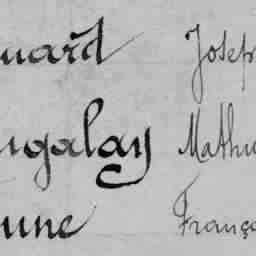 uard Josep
ugalay Mathu
une Franço